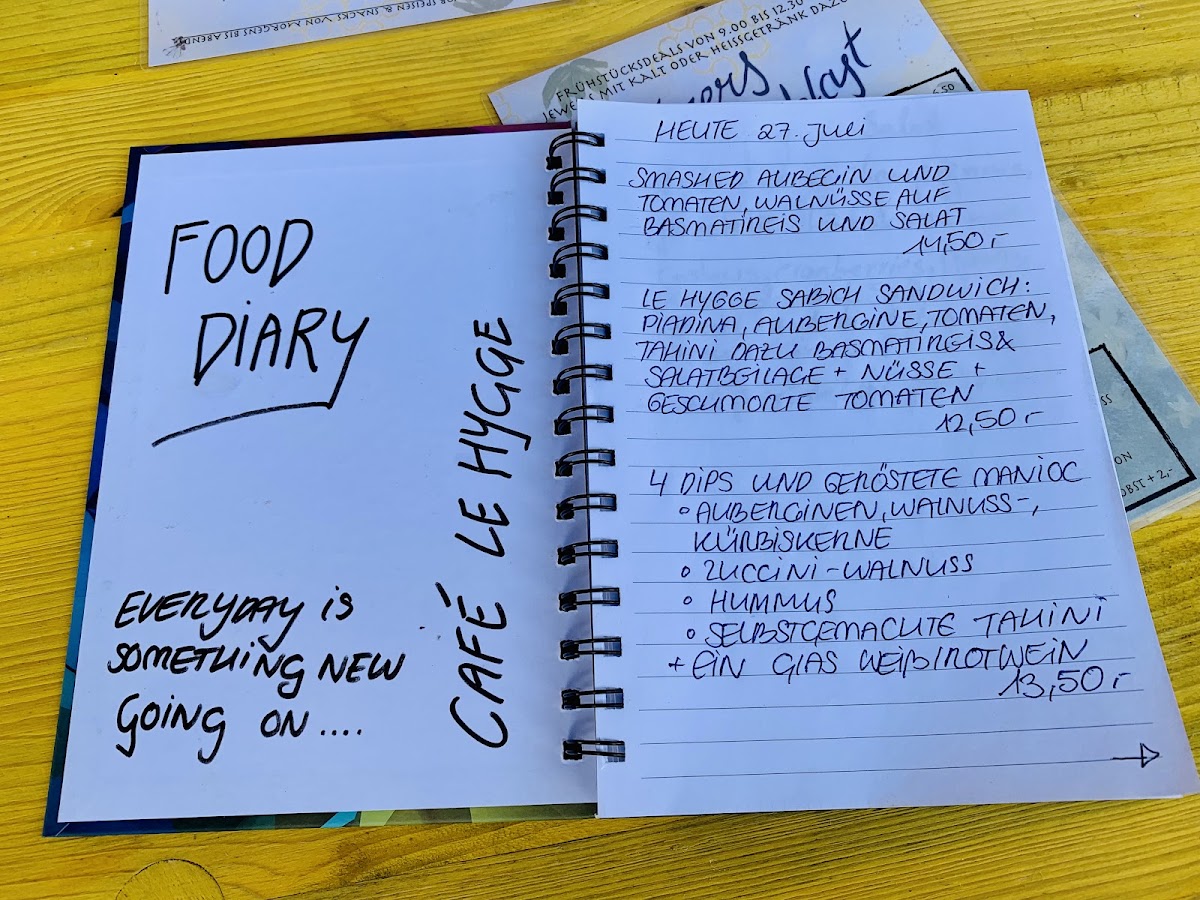 FOOD
DIARY
CAFÉ LE HYGGE
EVERYDAY is
SOMETHING NEW
GOING ON ....
HEUTE 27. Juli
SMASHED AUBEGIN UND
TOMATEN, WALNÜSSE AUF
BASMATIREIS UND SALAT
14,50,-
LE HYGGE SABICH SANDWICH:
PIADINA, AUBERGINE, TOMATEN,
TAHINI DAZU BASMATIREIS &
SALATBEILAGE + NÜSSE +
GESCHMORTE TOMATEN
12,50,-
4 DIPS UND GERÖSTETE MANIOC
• AUBERGINEN, WALNUSS-,
KÜRBISKERNE
• ZUCCINI-WALNUSS
• HUMMUS
• SELBSTGEMACHTE TAHINI
+ EIN GLAS WEIß/ROTWEIN
13,50,-
FRÜHSTÜCKSDEALS VON 9.00 BIS 12.30
JEWEILS MIT KALT ODER HEISSGETRÄNK DAZU
6,50
OBST + 2,-
& SNACKS VON MORGENS BIS ABENDS